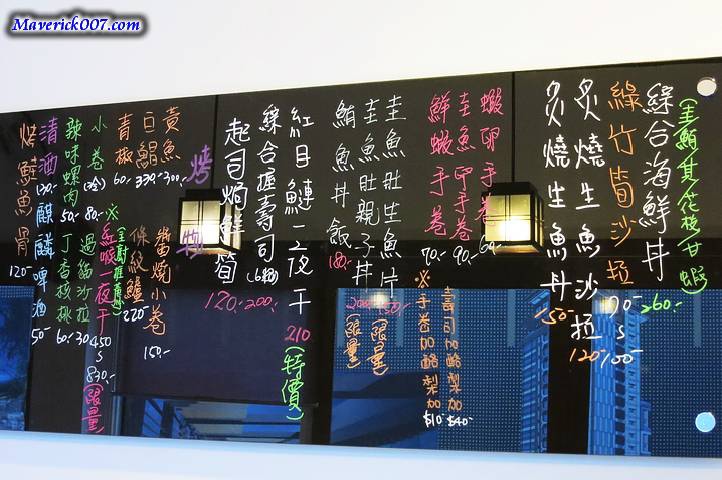 Maverick007.com
綜合海鮮丼 260.-
(圭鮪其花枝甘蝦)
綠竹筍沙拉 90.-
炙燒生魚沙拉 120/100.-
炙燒生魚丼 150.-
蝦卵手卷
圭魚卵手卷 90.-
鮮蝦手卷 70.-
※手卷加酪梨加$10-
壽司加酪梨加$40-
圭魚肚生魚片 (限量)
圭魚肚親子丼 (限量)
鮪魚丼飯 180.-
紅目鰱一夜干 210 (特價)
綜合握壽司(6個) 200.-
起司焗鮮筍 120.-
烤物
黃魚 300.-
白鯧 330.-
青椒 60.-
醬燒小卷 150.-
條紋鱸 220.-
小卷(冷) 80.-
辣味螺肉 50.-
※紅喉一夜干 450 S 830.- (限量)
過貓沙拉 30
丁香核桃 60.-
清酒 130.-
麒麟啤酒 50.-
烤鮭魚骨 120.-